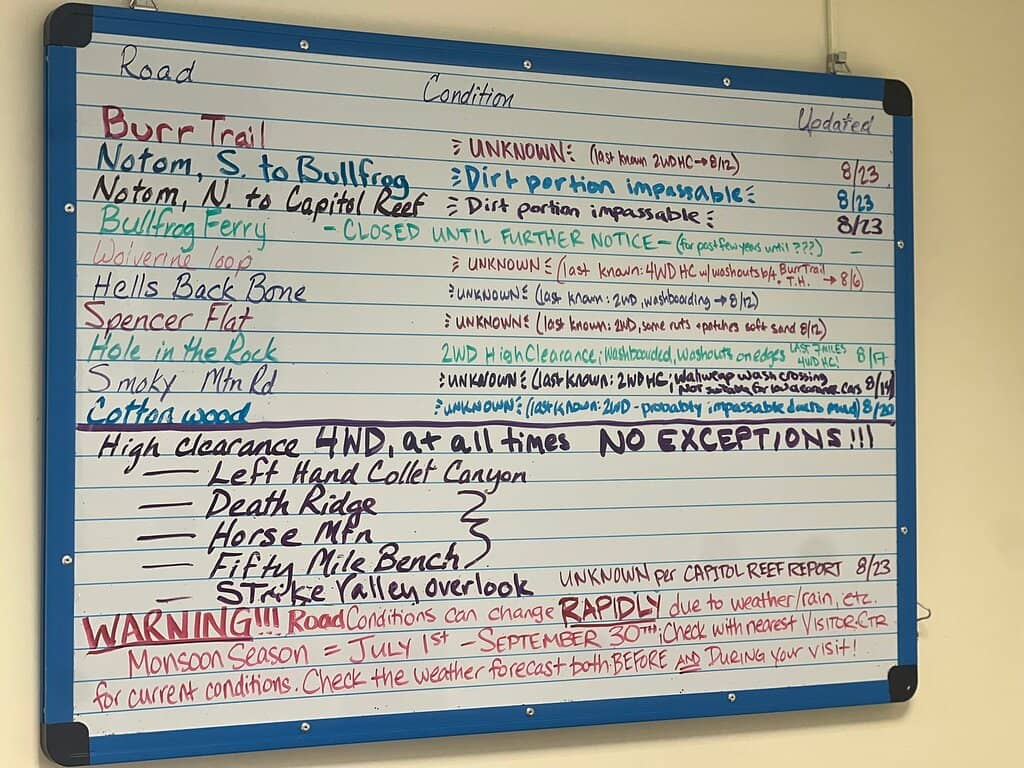 Road Condition Updated
Burr Trail UNKNOWN (last known 2WDHC→8/12) 8/23
Notom, S. to Bullfrog Dirt portion impassable 8/23
Notom, N. to Capitol Reef Dirt portion impassable 8/23
Bullfrog Ferry - CLOSED UNTIL FURTHER NOTICE - (for past few years until ???) -
Wolverine loop UNKNOWN (last known: 4WD HC w/washouts b/4 Burr Trail T.H. → 8/6)
Hells Back Bone UNKNOWN (last known: 2WD, washboarding → 8/12)
Spencer Flat UNKNOWN (last known: 2WD, some ruts + patches soft sand 8/12)
Hole in the Rock 2WD High Clearance; Washboarded, washouts on edges LAST 7 MILES 4WD HC! 8/17
Smoky Mtn Rd UNKNOWN (last known: 2WD HC; Wahweap wash crossing
Not suitable for low clearance cars 8/19)
Cottonwood UNKNOWN (last known: 2WD - probably impassable due to mud) 8/20
High clearance 4WD, at all times NO EXCEPTIONS!!!
— Left Hand Collet Canyon
— Death Ridge
— Horse Mtn
— Fifty Mile Bench
— Strike Valley overlook UNKNOWN per CAPITOL REEF REPORT 8/23
WARNING!!! Road Conditions can change RAPIDLY due to weather/rain, etc.
Monsoon Season = July 1st - September 30th; Check with nearest Visitor Ctr
for current conditions. Check the weather forecast both BEFORE AND DURING your visit!